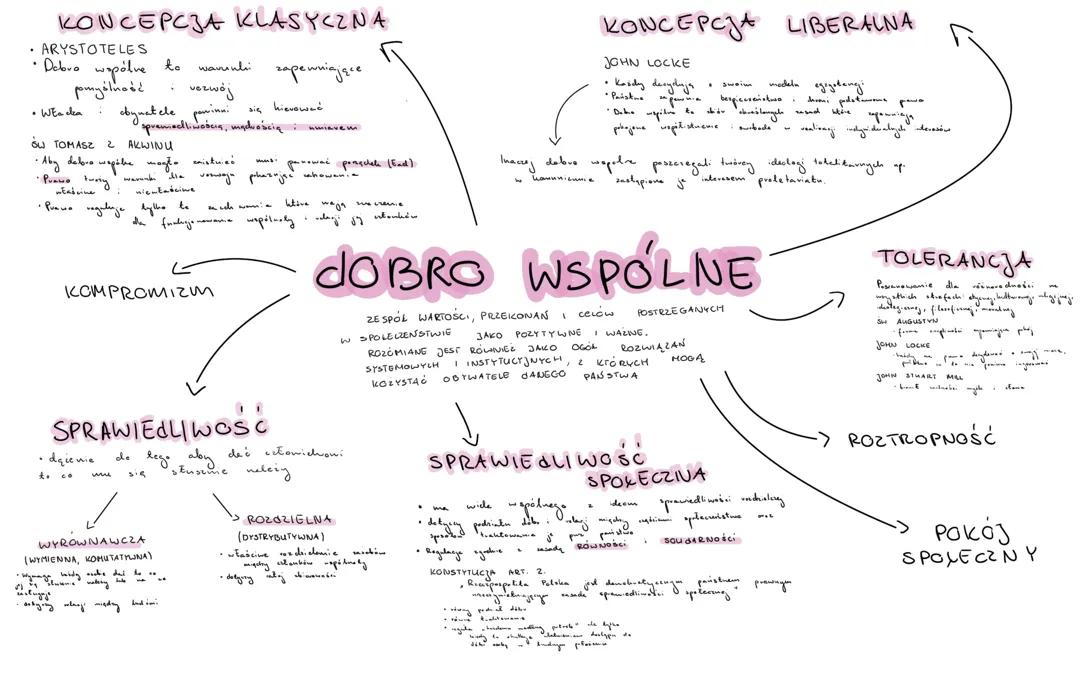 KONCEPCJA KLASYCZNA
• ARYSTOTELES
• Dobro wspólne to warunki zapewniające
pomyślność i rozwój
• Władca i obywatele powinni się kierować
sprawiedliwością, mądrością i umiarem
ŚW TOMASZ Z AKWINU
• Aby dobro wspólne mogło zaistnieć musi panować porządek (ład)
• Prawo tworzy warunki dla rozwoju pokazując zachowania
właściwe i niewłaściwe
• Prawo reguluje tylko te zachowania które mają znaczenie
dla funkcjonowania wspólnoty i relacji jej członków
KONCEPCJA LIBERALNA
JOHN LOCKE
• Każdy decyduje o swoim modelu egzystencji
• Państwo zapewnia bezpieczeństwo i chroni podstawowe prawa
• Dobro wspólne to zbiór określonych zasad które zapewniają
pokojowe współistnienie i swobodę w realizacji indywidualnych interesów
Inaczej dobro wspólne postrzegali twórcy ideologi totalitarnych np.
w komunizmie zastąpiono je interesem proletariatu.
DOBRO WSPÓLNE
ZESPÓŁ WARTOŚCI, PRZEKONAŃ I CELÓW POSTRZEGANYCH
W SPOŁECZEŃSTWIE JAKO POZYTYWNE I WAŻNE.
ROZÓMIANE JEST RÓWNIEŻ JAKO OGÓŁ ROZWIĄZAŃ
SYSTEMOWYCH I INSTYTUCYJNYCH, Z KTÓRYCH MOGĄ
KOZYSTAĆ OBYWATELE DANEGO PAŃSTWA
KOMPROMIZM
TOLERANCJA
Poszanowanie dla różnorodności we
wszystkich strefach: etycznej, kulturowej, religijnej,
ideologicznej, filozoficznej, moralnej
ŚW AUGUSTYN
• forma cierpliwości zapewniająca pokój
JOHN LOCKE
• każdy ma prawo decydować o swojej
państwo w to nie powinno ingerować
JOHN STUART MILL
• wolności myśli i słowa
ROZTROPNOŚĆ
POKÓJ
SPOŁECZNY
SPRAWIEDLIWOŚĆ
• dążenie do tego aby dać człowiekowi
to co mu się słusznie należy
WYRÓWNAWCZA
(WYMIENNA, KOMUTATYWNA)
• Wymaga każdej osobie dać to co
jej się słusznie należy lub na co
zasługuje
• dotyczy relacji między ludźmi
ROZDZIELNA
(DYSTRYBUTYWNA)
• właściwe rozdzielenie zasobów
między członków wspólnoty
• dotyczy całej zbiorowości
SPRAWIEDLIWOŚĆ
SPOŁECZNA
• ma wiele wspólnego z ideom sprawiedliwości rozdzielczej
• dotyczy podziału dóbr i relacji między częściami społeczeństwa oraz
sposobu traktowania je przez państwo
• Reguluje zgodnie z zasadą RÓWNOŚCI i SOLIDARNOŚCI
KONSTYTUCJA ART. 2.
„Rzeczpospolita Polska jest demokratycznym państwem prawnym
urzeczywistniającym zasade sprawiedliwości społecznej"
• równy podział dóbr
• równe traktowanie
• reguła „każdemu według potrzeb" ale tylko
kiedy to skutkuje ułatwieniem dostępu do
dóbr osoby w trudnym położeniu